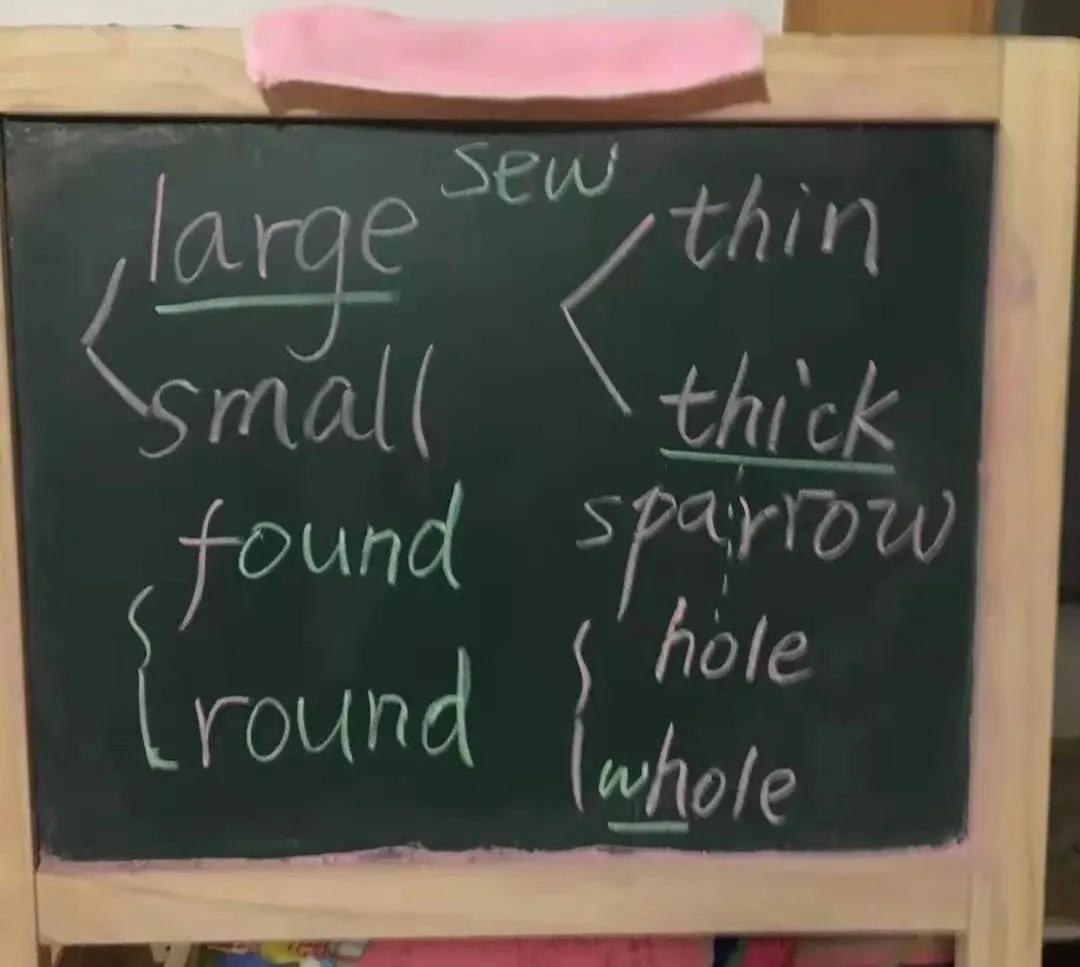 sew
large
small
found
round
thin
thick
sparrow
hole
whole